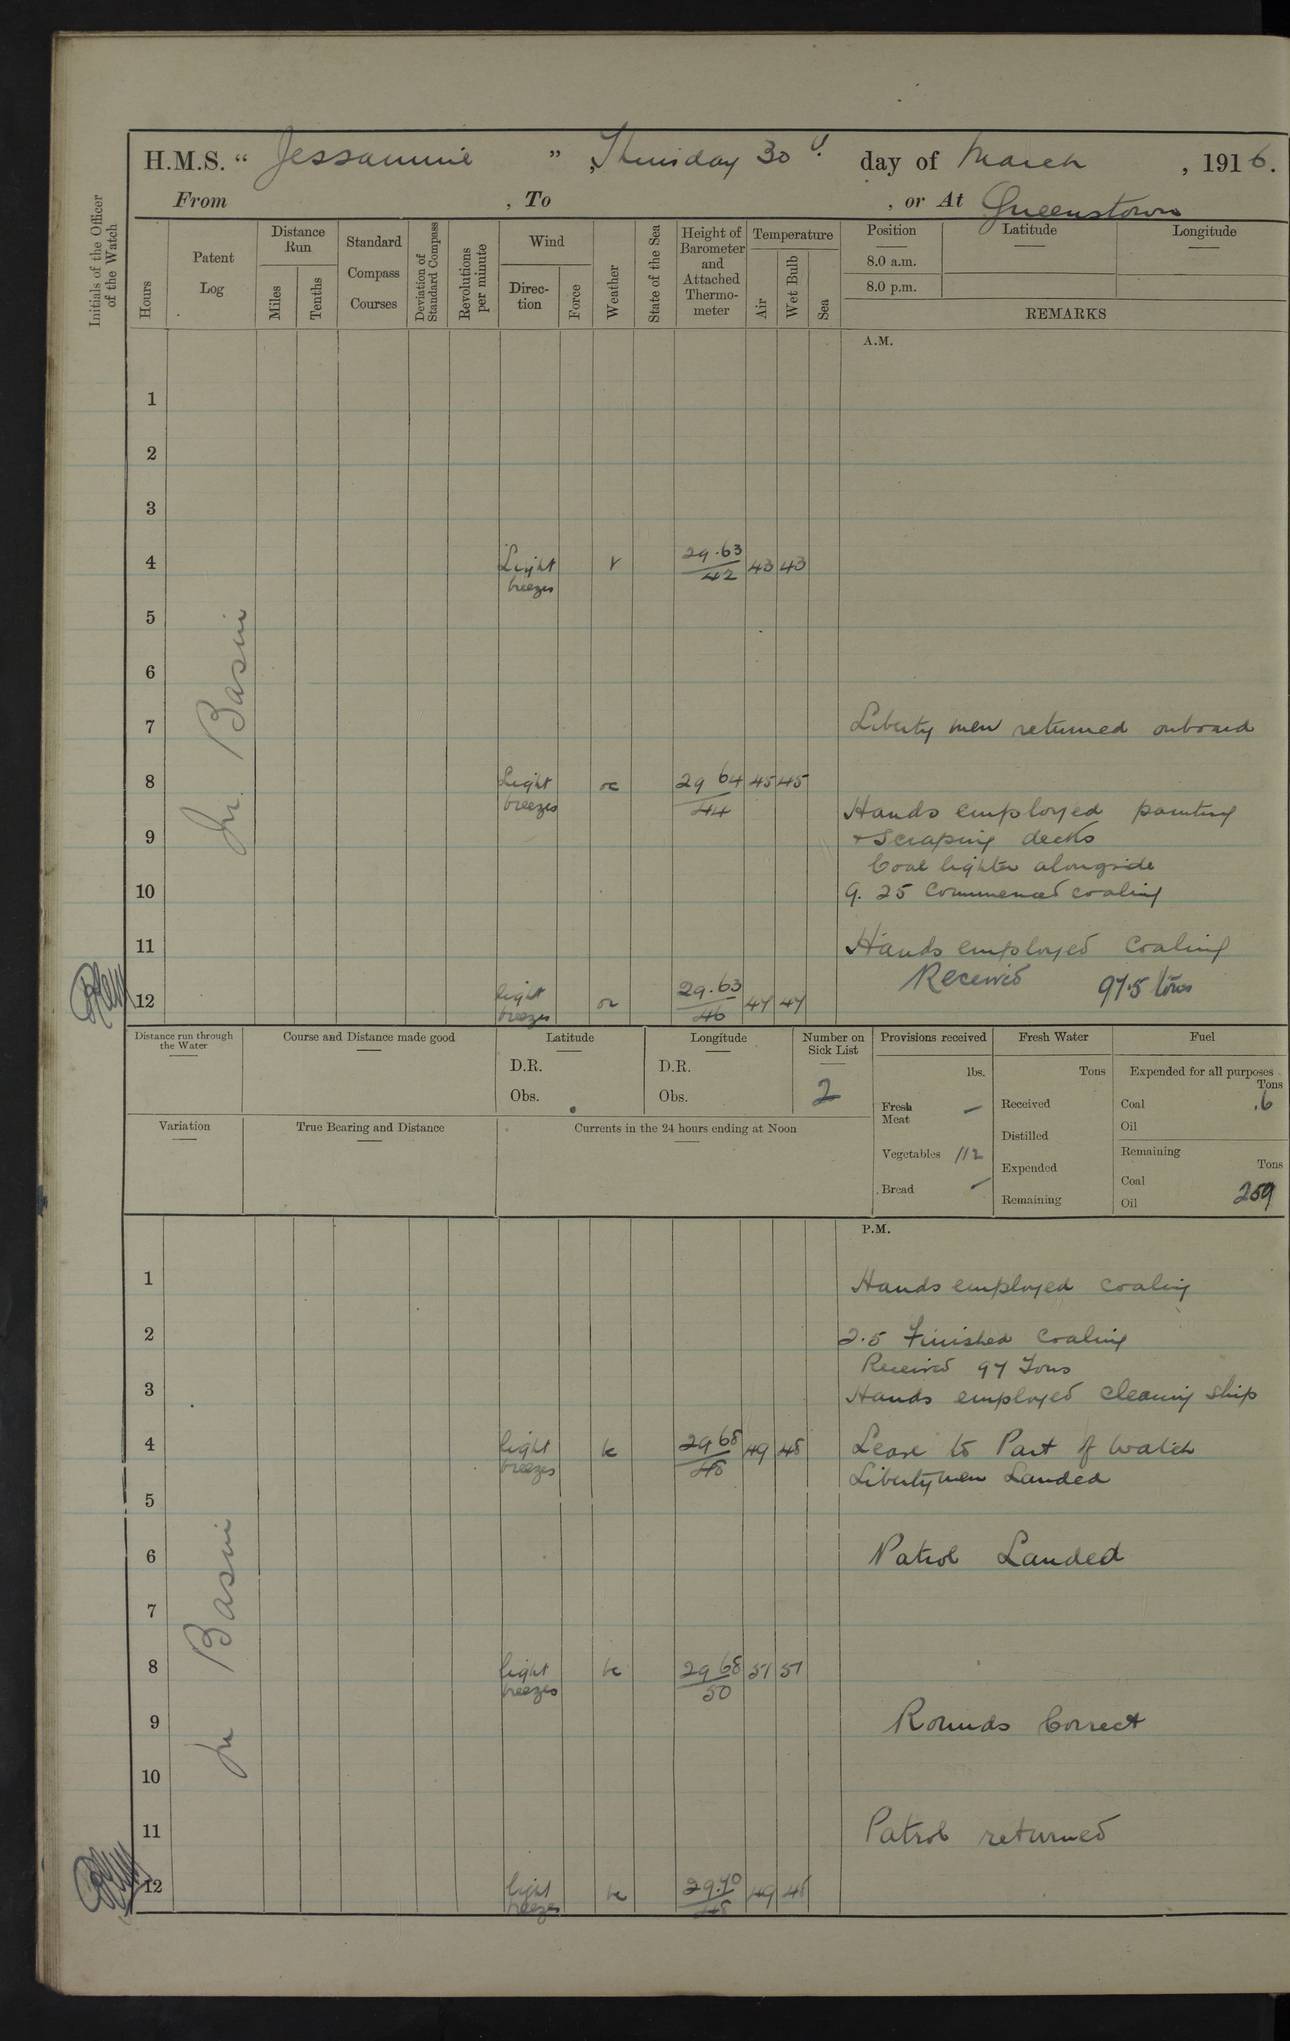 H.M.S. “ Jessamine ” , Thursday 30th day of March , 1916.
From , To , or At Queenstown
Initials of the Officer of the Watch
Hours
Patent Log
Distance Run
Miles
Tenths
Standard Compass Courses
Deviation of Standard Compass
Revolutions per minute
Wind
Direc-tion
Force
Weather
State of the Sea
Height of Barometer and Attached Thermo-meter
Temperature
Air
Wet Bulb
Sea
Position
8.0 a.m.
8.0 p.m.
Latitude
Longitude
REMARKS
A.M.
1
2
3
4 Light breezes r 29.63/42 43 43
5
6
In Basin
7 Liberty men returned onboard
8 Light breezes oc 29 64/44 45 45
Hands employed painting
9 + Scraping decks
Coal lighter alongside
10 9.25 Commenced coaling
11 Hands employed Coaling
Received 97.5 tons
12 light breezes 29.63/46 47 47
Distance run through the Water
Course and Distance made good
Latitude
D.R.
Obs.
Longitude
D.R.
Obs.
Number on Sick List
2
Provisions received
lbs.
Fresh Meat —
Vegetables 112
Bread —
Fresh Water
Tons
Received
Distilled
Expended
Remaining
Fuel
Expended for all purposes
Tons
Coal .6
Oil
Remaining
Tons
Coal
Oil
259
Variation
True Bearing and Distance
Currents in the 24 hours ending at Noon
P.M.
1 Hands employed coaling
2 2.5 Finished Coaling
Received 97 Tons
3 Hands employed cleaning ship
4 light breezes bc 29 68/48 49 48 Leave to Part of Watch
Libertymen Landed
5
6 Patrol Landed
In Basin
7
8 light breezes bc 29 68/50 51 51
9 Rounds Correct
10
11 Patrol returned
12 light breezes bc 29.70/48 49 48